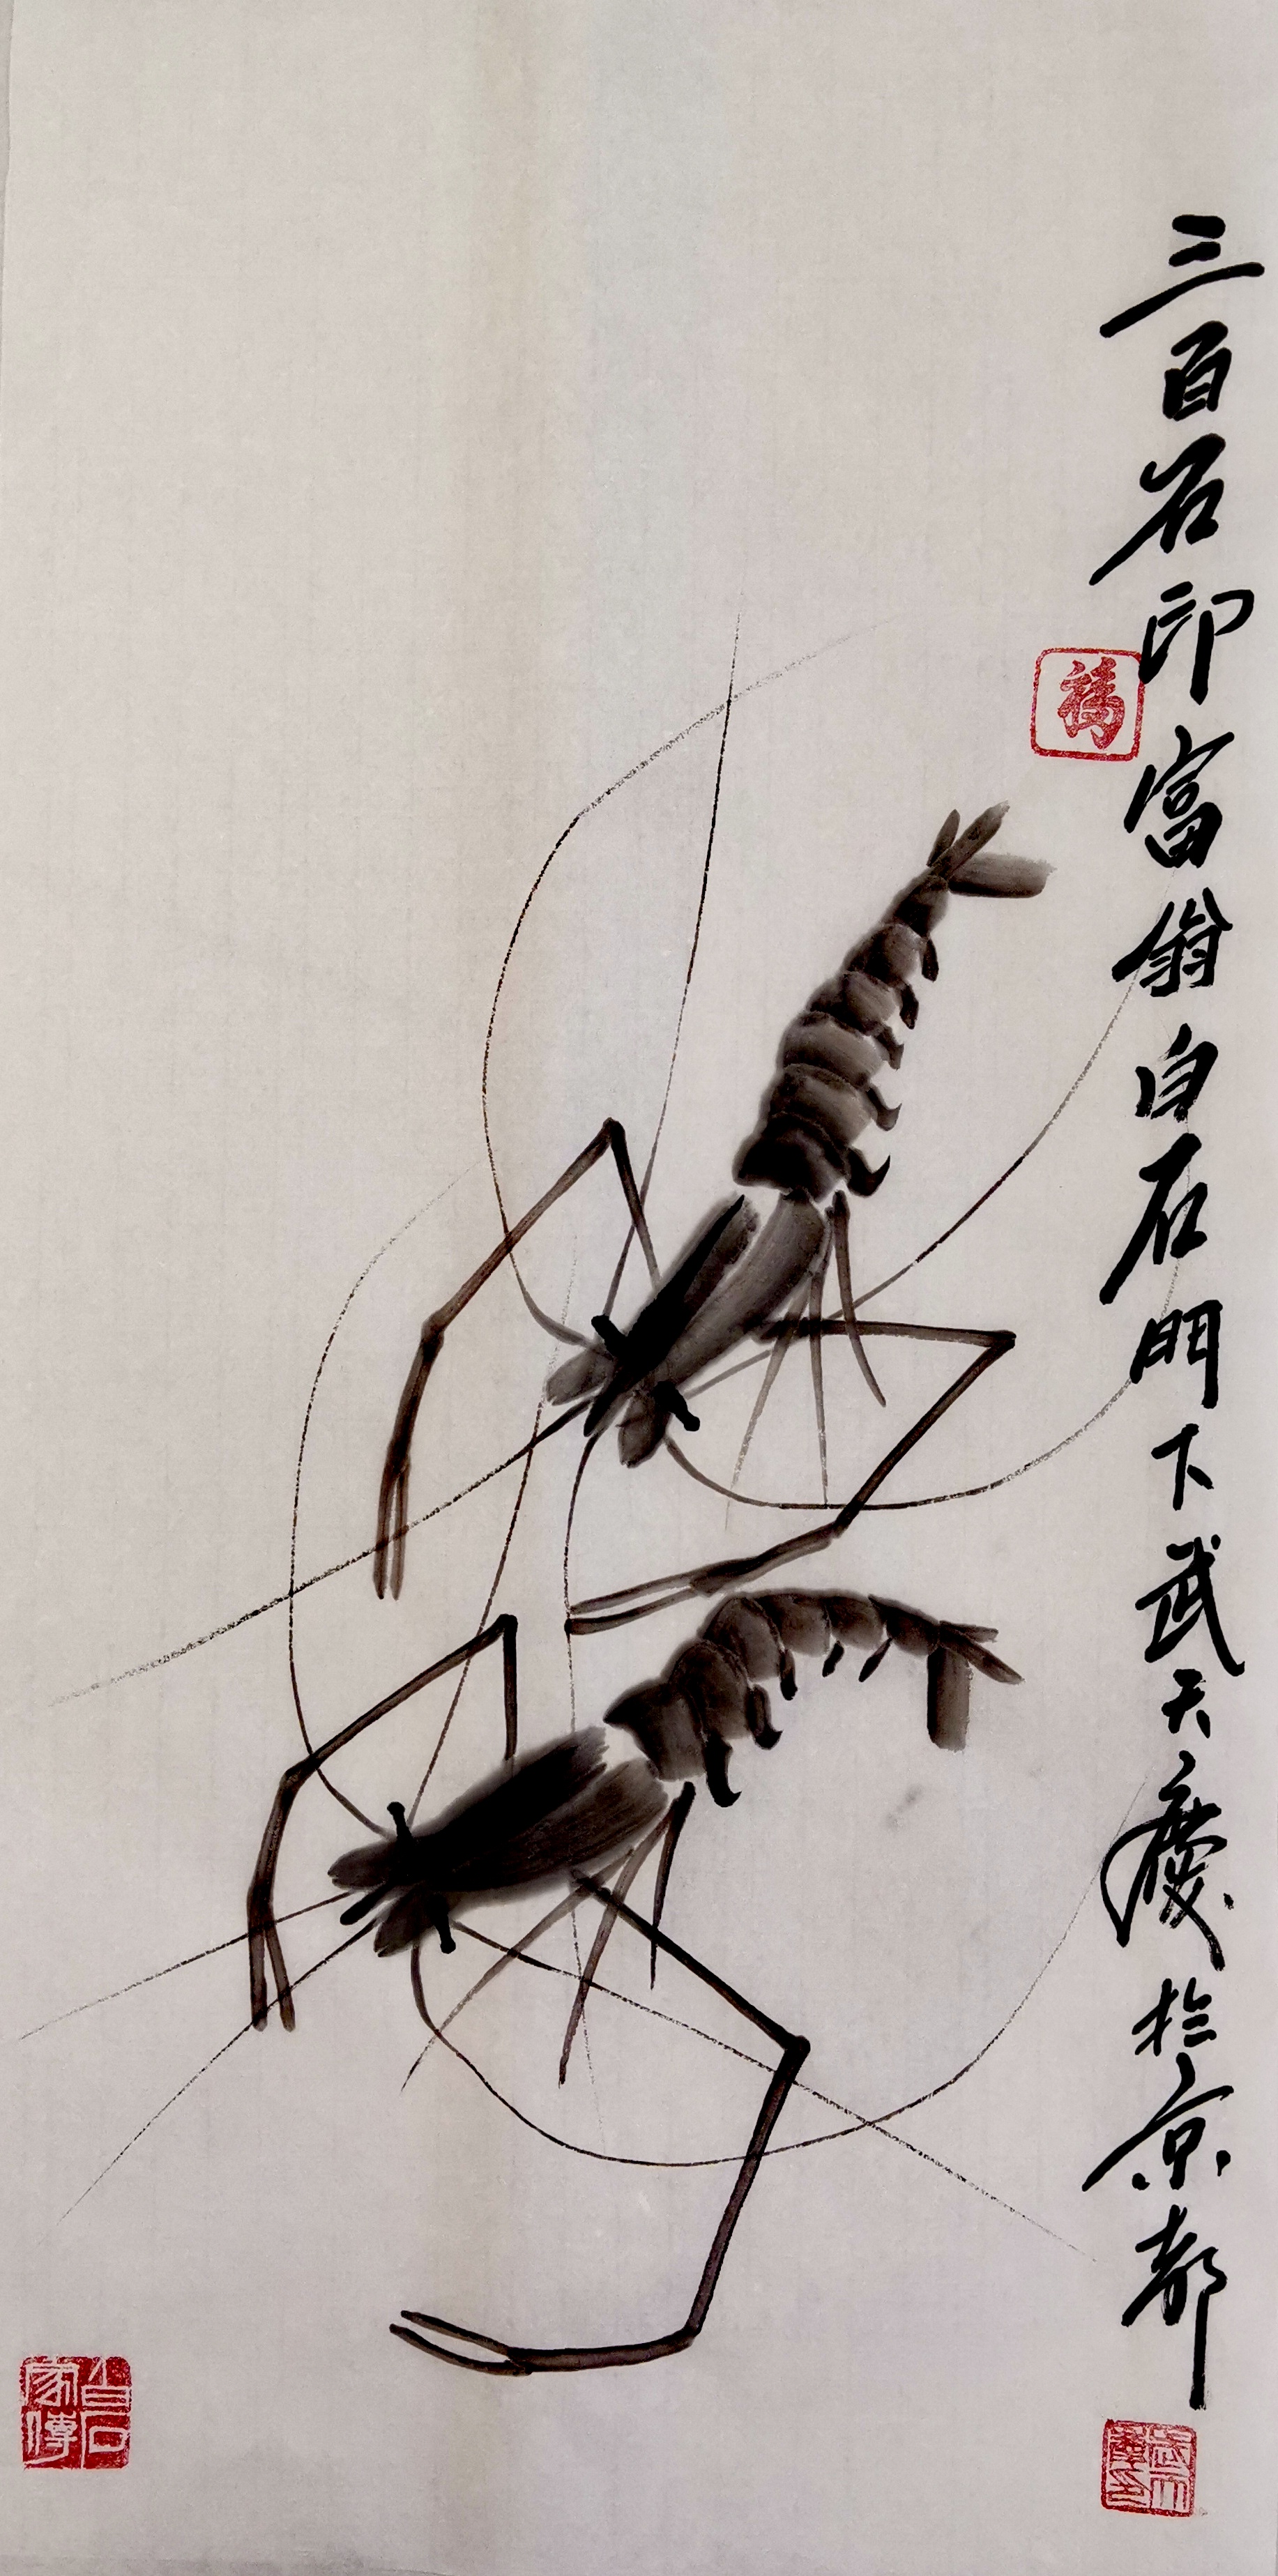 三百石印富翁白石門下武天慶於京都
福
白石家傳
武天慶印